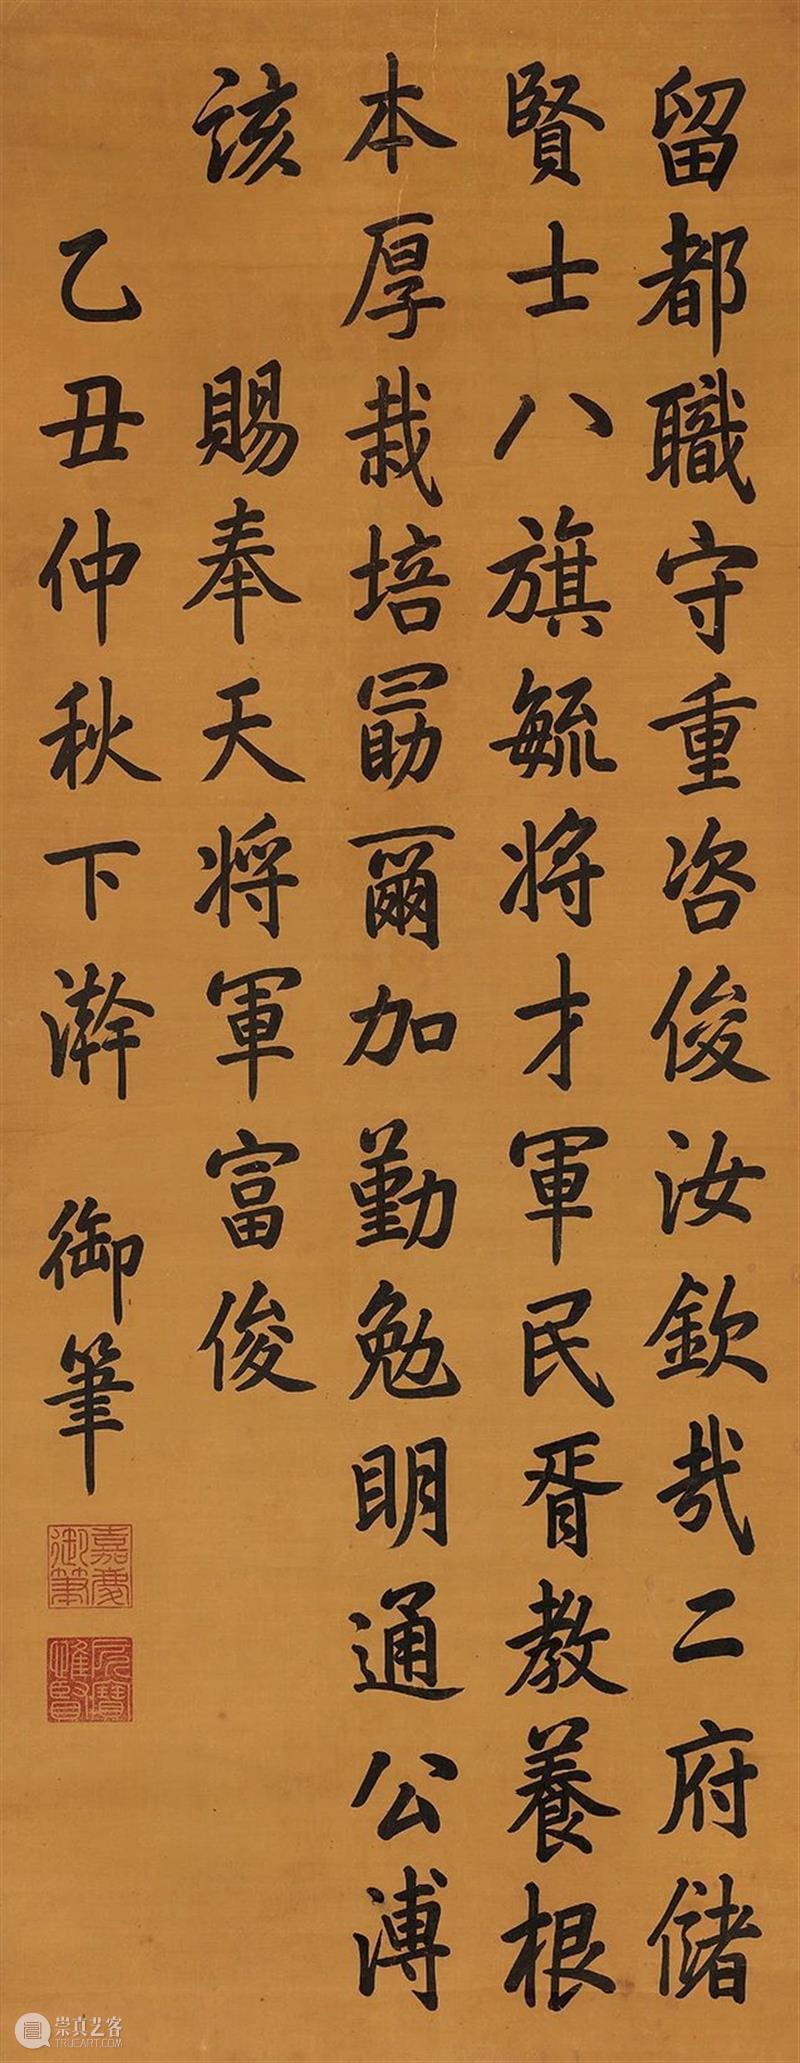 留都職守重咨俊汝欽哉二府儲
賢士八旗毓將才軍民胥教養根
本厚栽培勗爾加勤勉明通公溥
該
賜奉天將軍富俊
乙丑仲秋下澣 御筆
嘉慶御筆
所寶惟賢
崇真艺客
TRUEART.COM